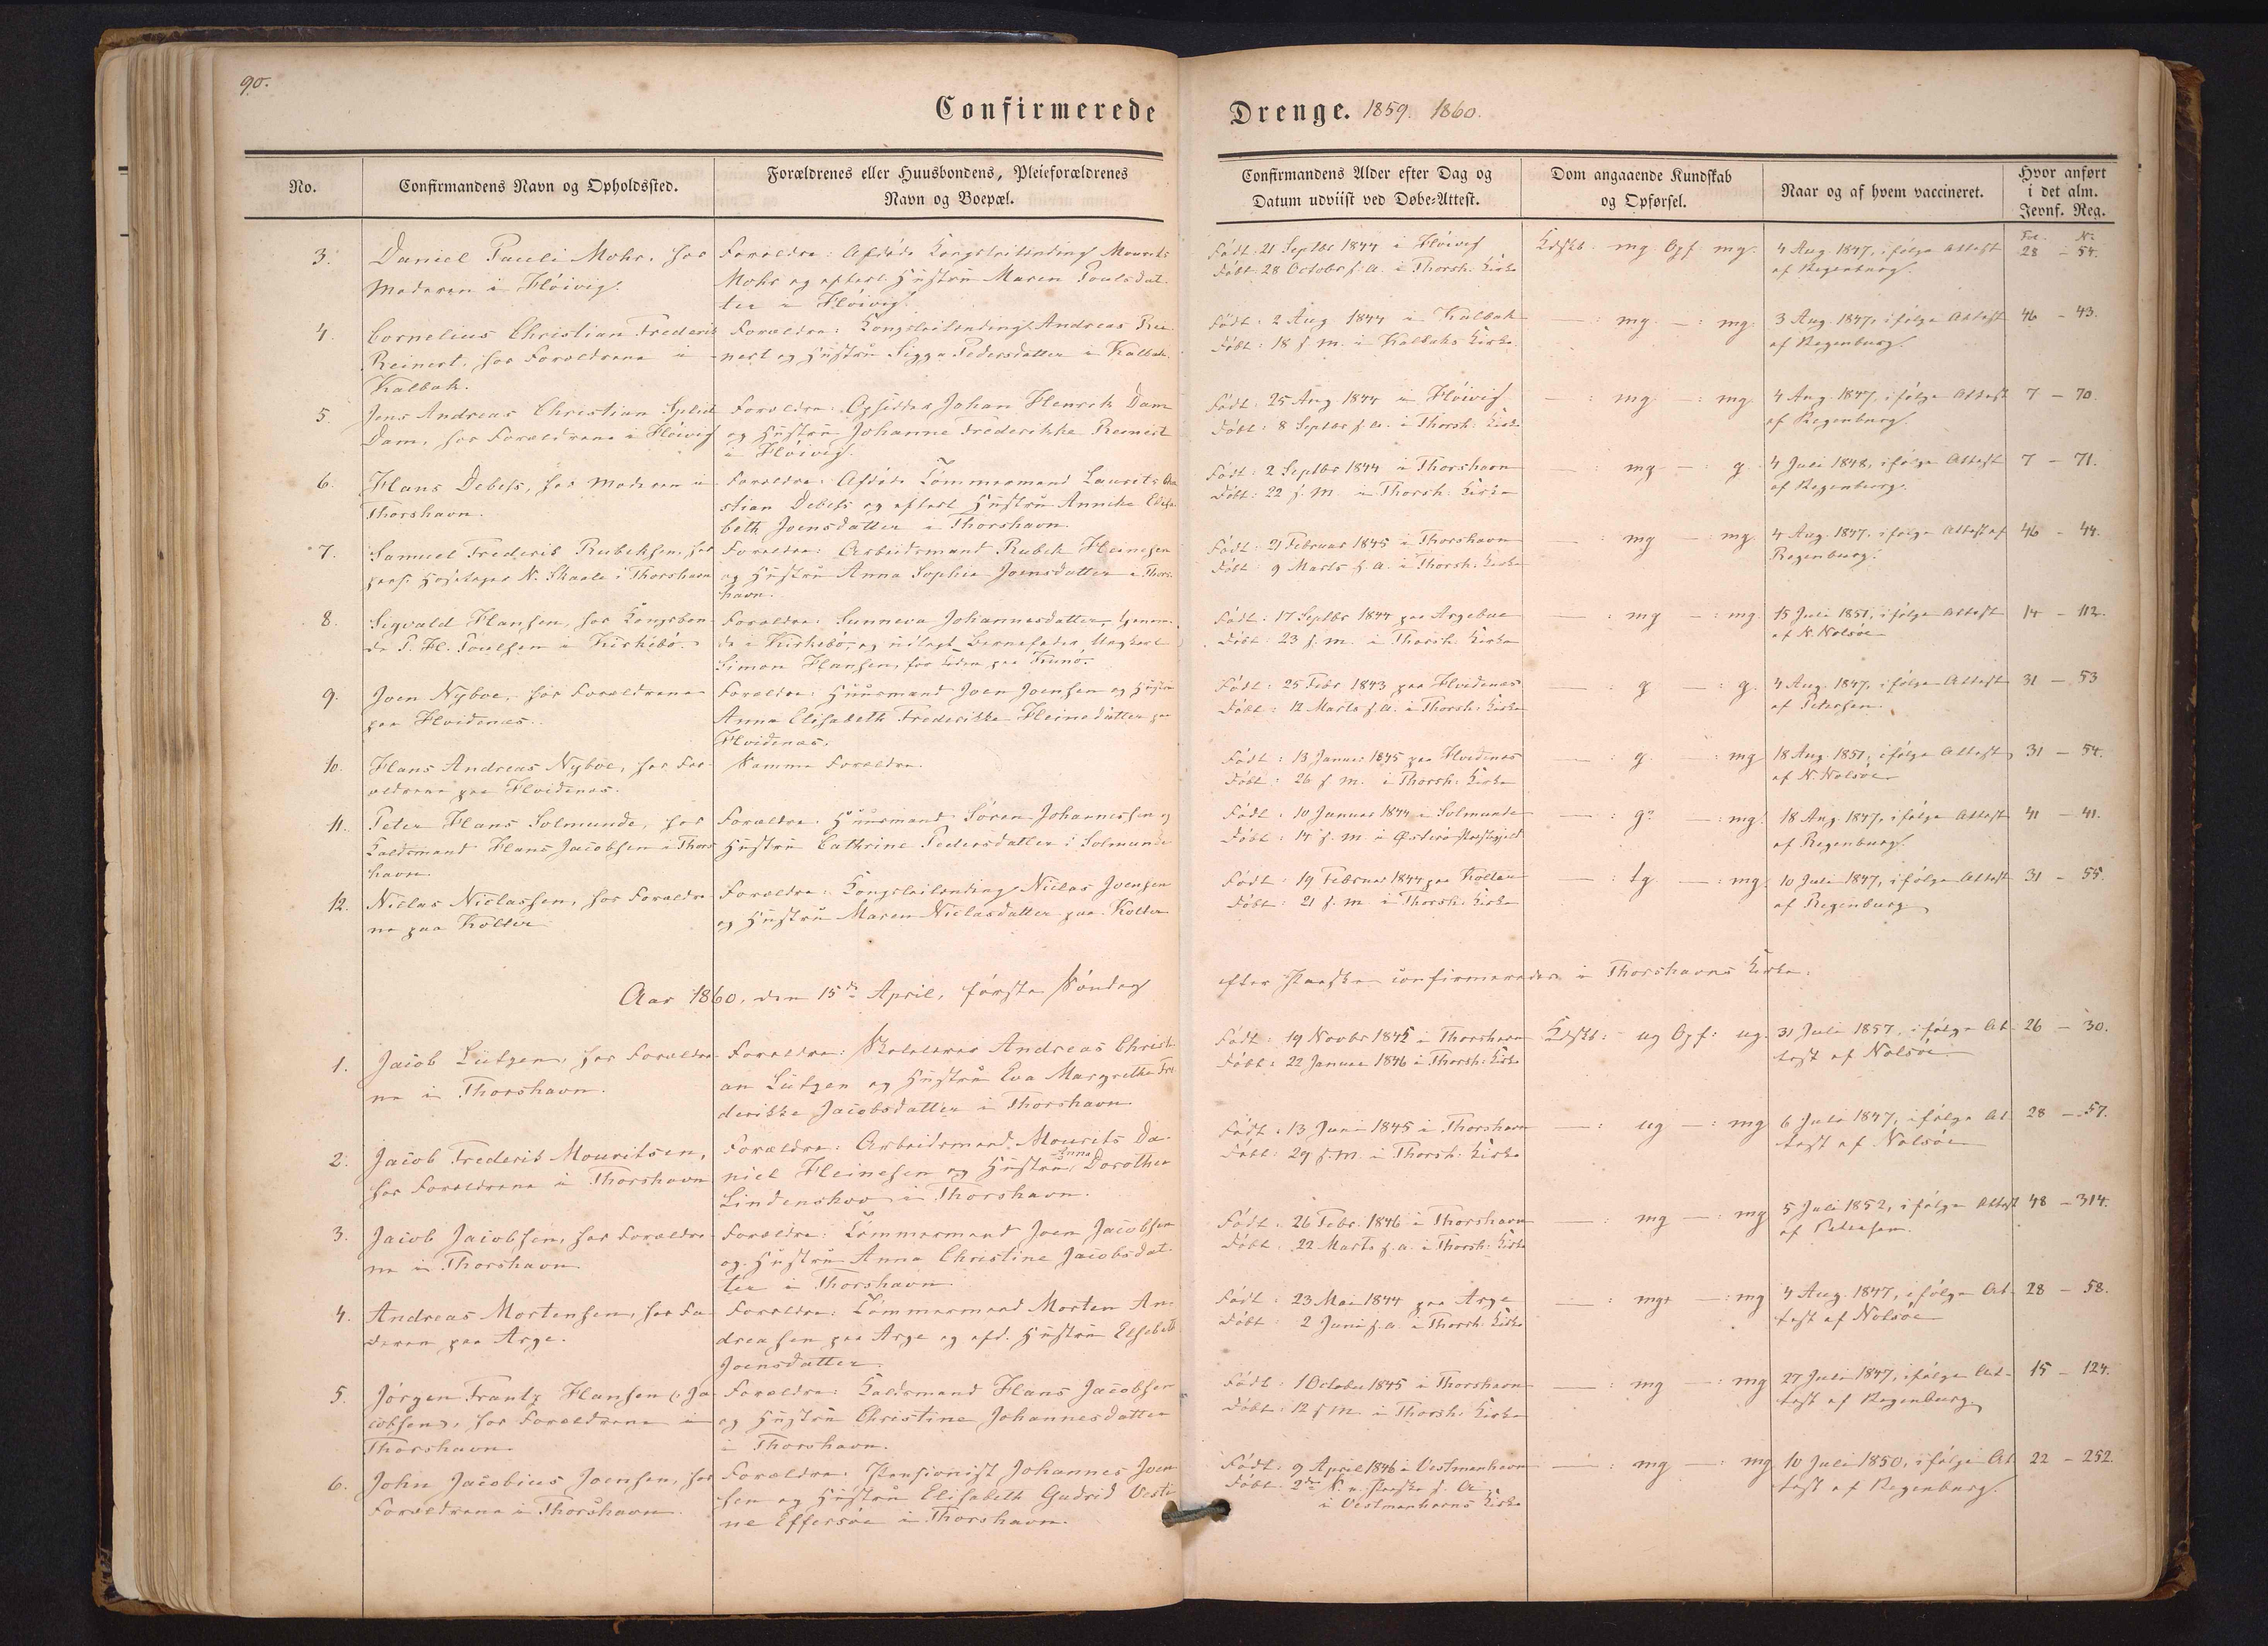 90.
Confirmerede Drenge. 1859. 1860.
No.
Confirmandens Navn og Opholdssted.
Forældrenes eller Huusbondens, Pleieforældrenes
Navn og Boepæl.
Confirmandens Alder efter Dag og
Datum udviist ved Døbe-Attest.
Dom angaaende Kundskab
og Opførsel.
Naar og af hvem vaccineret.
Hvor anført
i det alm.
Jevnf. Reg.
3.
Daniel Pauli Mohr, hos
Moderen i Hóivig.
Forældre: Afdøde Kongsleilænding Mourits
Mohr og efterl. Hustru Maren Poulsdat-
ter i Hóivig.
Født: 21 Septbr 1844 i Hóivig
Døbt: 28 October s. a. i Thorsh. Kirke
Kdskb. mg. Opf. mg.
4 Aug. 1847, ifølge Attest
af Regenburg.
Fol. No.
28 - 54.
4.
Cornelius Christian Frederik
Reinert, hos Forældrene i
Kalbak.
Forældre: Kongsleilænding Andreas Rei-
nert og Hustru Sigga Pedersdatter i Kalbak.
Født: 2 Aug. 1844 i Kalbak
Døbt: 18 s. m. i Kalbaks Kirke.
— : mg. — : mg.
3 Aug. 1847, ifølge Attest
af Regenburg.
46 - 43.
5.
Jens Andreas Christian Splid
Dam, hos Forældrene i Hóivig
Forældre: Opsidder Johan Henrik Dam
og Hustru Johanne Frederikke Reinert
i Hóivig.
Født: 25 Aug. 1844 i Hóivig
Døbt: 8 Septbr s. a. i Thorsh. Kirke
— : mg — : mg.
4 Aug. 1847, ifølge Attest
af Regenburg.
7 - 70.
6.
Hans Debess, hos Moderen i
Thorshavn.
Forældre: Afdøde Tømmermand Laurits
stian Debess og efterl. Hustru Annike Elisa-
beth Joensdatter i Thorshavn.
Født: 2 Septbr 1844 i Thorshavn
Døbt: 22 s. M. i Thorsh. Kirke
— : mg — : g.
4 Juli 1848, ifølge Attest
af Regenburg.
7 - 71.
7.
Samuel Frederik Rubeksen, hos
N. Skaale i Thorshavn
Forældre: Arbeidsmand Rubek Heinesen
og Hustru Anna Sophie Joensdatter i Thors-
havn.
Født: 21 Februar 1845 i Thorshavn
Døbt: 9 Marts s. a. i Thorsh. Kirke
— : mg — mg.
4 Aug. 1847, ifølge Attest af
Regenburg.
46 - 44.
8.
Sigvald Hansen, hos Kongsbon-
de P. H. Poulsen i Kirkebó.
Forældre: Sunneva Johannesdatter, hjemme
de i Kirkebó, og udlagt Barnefader Ungkarl
Simon Hansen, før paa Kunó.
Født: 17 Septbr 1844 paa Argeboe
Døbt: 23 s. m. i Thorsh. Kirke
— : mg — : mg.
15 Juli 1851, ifølge Attest
af N. Nolsóe
14 - 112.
9.
Joen Nyboe, hos Forældrene
paa Hvidenæs.
Forældre: Huusmand Joen Joensen og Hustru
Anna Elisabeth Frederikke Heinedatter paa
Hvidenæs.
Født: 25 Febr. 1843 paa Hvidenæs
Døbt: 12 Marts s. a. i Thorsh. Kirke
— : g — : g.
4 Aug. 1847, ifølge Attest
af Petersen.
31 - 53
10.
Hans Andreas Nyboe, hos For-
ældrene paa Hvidenæs.
Samme Forældre.
Født: 13 Januar 1845 paa Hvidenæs
Døbt: 26 s. m. i Thorsh. Kirke
— : g. — : mg
18 Aug. 1851, ifølge Attest
af N. Nolsóe
31 - 54.
11.
Peter Hans Solmunde, hos
Koldsmand Hans Jacobsen i Thors-
havn.
Forældre: Huusmand Sóren Johannessen og
Hustru Cathrine Pedersdatter i Solmunde
Født: 10 Januar 1844 i Solmunde
Døbt: 14 s. m. i Østerö Præstegjeld
— : g? — : mg.
18 Aug. 1847, ifølge Attest
af Regenburg.
41 - 41.
12.
Niclas Niclassen, hos Forældre-
ne paa Kolter
Forældre: Kongsleilænding Niclas Joensen
og Hustru Maren Niclasdatter paa Kolter
Født: 19 Februar 1844 paa Kolter
Døbt: 21 s. m. i Thorsh. Kirke
— : tg — : mg.
10 Juli 1847, ifølge Attest
af Regenburg
31 - 55.
Aar 1860, den 15de April, første Søndag efter Paaske confirmeredes i Thorshavns Kirke.
1.
Jacob Lützen, hos Forældre-
ne i Thorshavn.
Forældre: Andreas Christi-
an Lützen og Hustru Eva Margrethe Fre-
derikke Jacobsdatter i Thorshavn
Født: 19 Novbr 1845 i Thorshavn
Døbt: 22 Januar 1846 i Thorsh. Kirke
Kdskb: ug Opf: ug.
31 Juli 1857, ifølge At-
test af Nolsóe.
26 - 30.
2.
Jacob Frederik Mouritsen,
hos Forældrene i Thorshavn
Forældre: Arbeidsmand Mourits Da-
niel Heinesen og Hustru Anna Dorothea
Lindenskov i Thorshavn.
Født: 13 Juni 1845 i Thorshavn
Døbt: 29 s. m. i Thorsh. Kirke
— : ug — : mg
6 Juli 1847, ifølge At-
test af Nolsóe
28 - 57.
3.
Jacob Jacobsen, hos Forældre-
ne i Thorshavn
Forældre: Tømmermand Joen Jacobsen
og Hustru Anna Christine Jacobsdat-
ter i Thorshavn
Født: 26 Febr. 1846 i Thorshavn
Døbt: 22 Marts s. a. i Thorsh. Kirke
— : mg — : mg
5 Juli 1852, ifølge Attest
af Petersen.
48 - 314.
4.
Andreas Mortensen, hos Fa-
deren paa Arge.
Forældre: Tømmermand Morten An-
dreasen paa Arge og afd. Hustru Elsebeth
Joensdatter.
Født: 23 Mai 1844 paa Arge
Døbt: 2 Juni s. a. i Thorsh. Kirke
— : mg+ — : mg
4 Aug. 1847, ifølge At-
test af Nolsóe
28 - 58.
5.
Jørgen Frantz Hansen (Ja-
cobsen), hos Forældrene i
Thorshavn
Forældre: Koldsmand Hans Jacobsen
og Hustru Christine Johannesdatter
i Thorshavn.
Født: 1 October 1845 i Thorshavn
Døbt: 12 s. m. i Thorsh. Kirke
— : mg — : mg
27 Juli 1847, ifølge At-
test af Regenburg
15 - 124.
6.
John Jacobius Joensen, hos
Forældrene i Thorshavn
Forældre: Pensionist Johannes Joen-
sen og Hustru Elisabeth Gudrid Vesti-
ne Effersóe i Thorshavn.
Født: 9 April 1846 i Vestmanhavn
Døbt: 2den S. n. Paaske s. a.
i Vestmanhavns Kirke
— : mg — : mg
10 Juli 1850, ifølge At-
test af Regenburg.
22 - 252.